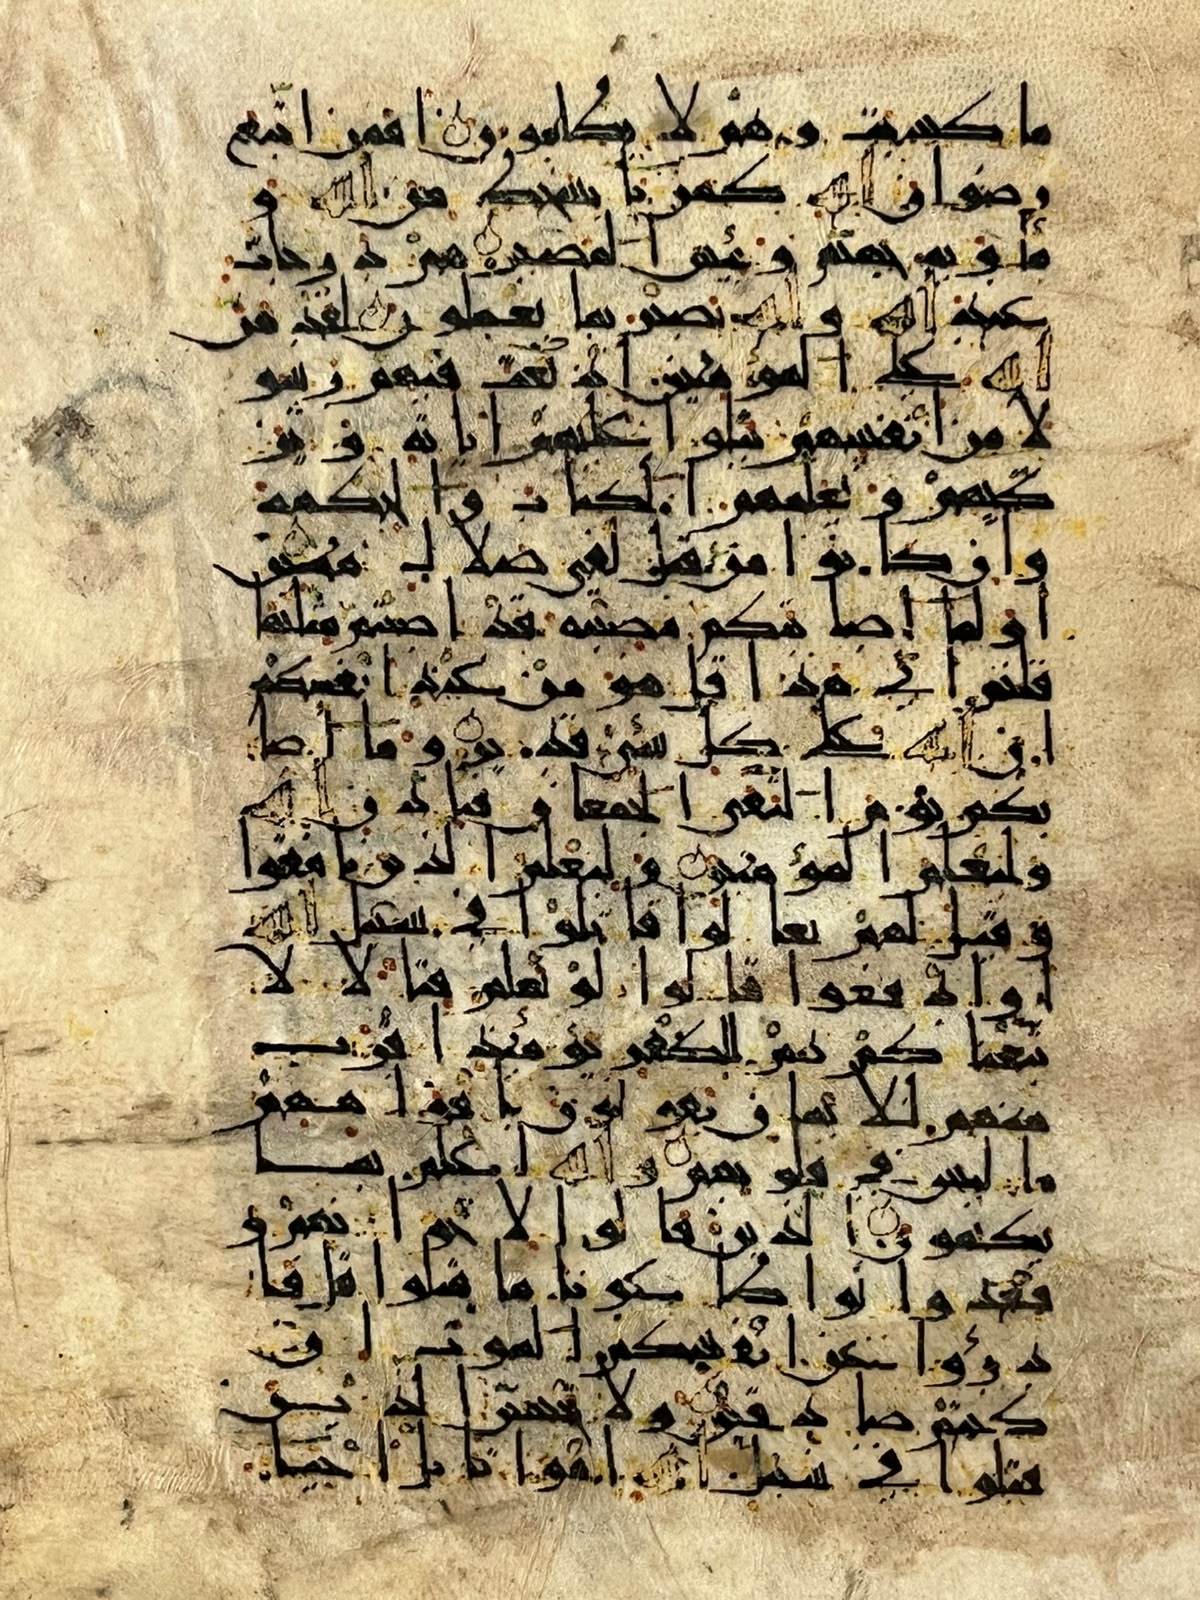 ما كسبت و هم لا يظلمو ن ا فمن ا تبع
ر ضوا ن الله كمن با بسخط من الله و
مأ و يه جهنم و بئس ا لمصير هم د ر جات
عند الله و الله بصير بما يعملو ن لقد من
الله على ا لمؤ منين ا ذ بعث فيهم ر سو
لا من ا نفسهم يتلو ا عليهم ا يا ته و يز
كيهم و يعلمهم ا لكتا ب و ا لحكمة
و ا ن كا نو ا من قبل لفي ضلا ل مبين
ا و لما ا صا بتكم مصيبة قد ا صبتم مثليها
قلتم ا نى هذ ا قل هو من عند ا نفسكم
ا ن الله على كل شئ قد ير و ما ا صا
بكم يو م ا لتقى ا لجمعا ن فبا ذ ن الله
و ليعلم ا لمؤ منين و ليعلم ا لذ ين نا فقوا
و قيل لهم تعا لو ا قا تلو ا في سبيل الله
ا و ا د فعو ا قا لو ا لو نعلم قتا لا لا
تبعنا كم هم للكفر يو مئذ ا قر ب
منهم للا يما ن يقو لو ن با فو ا ههم
ما ليس في قلو بهم و الله ا علم بما
يكتمو ن ا لذ ين قا لو ا لا خو ا نهم و
قعد و ا لو ا طا عو نا ما قتلو ا قل فا
د ر ؤ ا عن ا نفسكم ا لمو ت ا ن
كنتم صا د قين و لا تحسبن ا لذ ين
قتلو ا في سبيل الله ا مو ا تا بل ا حيا